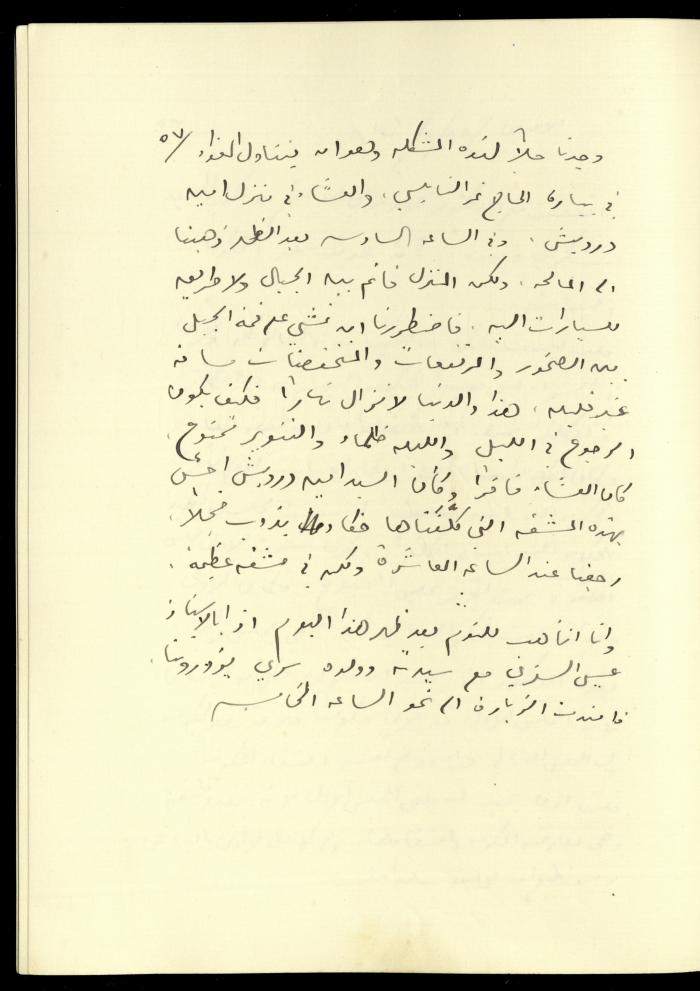 ٥٧/
وجدنا حلاً لهذه المشكلة وهو ان نتناول الغداء
في بيارة الحاج نمر النابلسي، والعشاء في منزل امين
درويش. وفي الساعه السادسه بعد الظهر ذهبنا
الى المالحه، ولكن المنزل قائم بين الجبال ولا طريق
للسيارات اليه، فاضطررنا ان نمشي على قمة الجبل
بين الصخور والمرتفعات والمنخفضات مسافه
غير قليله، هذا والدنيا لا تزال نهاراً فكيف يكون
الرجوع في الليل والليله ظلماء والتنوير ممنوع.
كان العشاء فاخراً وكأن السيد امين درويش احس
بهذه المشقه التي كلَّفَنَاها فكاد يذوب خجلاً.
رجعنا عند الساعه العاشرة ولكن في مشقه عظيمة.
وانا اتأهب للنوم بعد ظهر هذا اليوم اذا بالاستاذ
عيسى السفري مع سيدته وولده سري يزوروننا.
فامتدت الزيارة الى نحو الساعه الخامسه